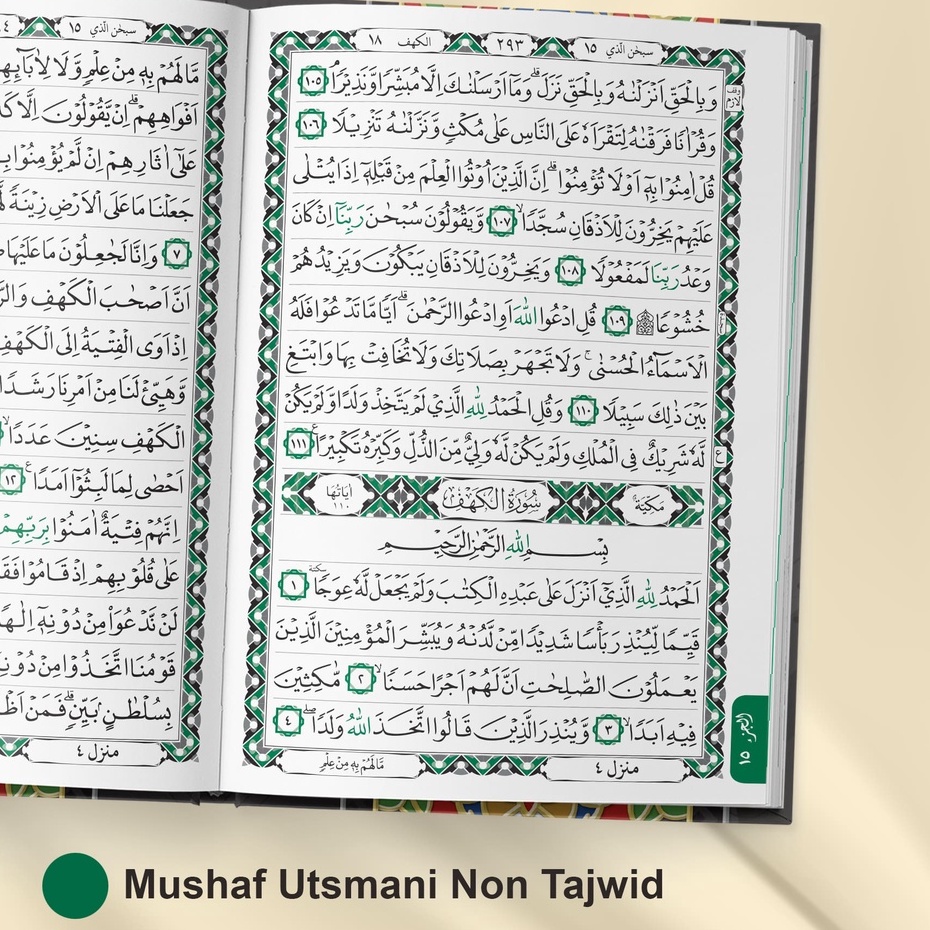 سبحن الذي ١٥
الكهف ١٨
٢٩٣
سبحن الذي ١٥
وَبِالْحَقِّ اَنْزَلْنٰهُ وَبِالْحَقِّ نَزَلَ ۗ وَمَآ اَرْسَلْنٰكَ اِلَّا مُبَشِّرًا وَّنَذِيْرًا ۘ ١٠٥
وقف لازم
وَقُرْاٰنًا فَرَقْنٰهُ لِتَقْرَاَهٗ عَلَى النَّاسِ عَلٰى مُكْثٍ وَّنَزَّلْنٰهُ تَنْزِيْلًا ١٠٦
قُلْ اٰمِنُوْا بِهٖٓ اَوْ لَا تُؤْمِنُوْا ۗ اِنَّ الَّذِيْنَ اُوْتُوا الْعِلْمَ مِنْ قَبْلِهٖٓ اِذَا يُتْلٰى
عَلَيْهِمْ يَخِرُّوْنَ لِلْاَذْقَانِ سُجَّدًا ۙ ١٠٧ وَّيَقُوْلُوْنَ سُبْحٰنَ رَبِّنَآ اِنْ كَانَ
وَعْدُ رَبِّنَا لَمَفْعُوْلًا ١٠٨ وَيَخِرُّوْنَ لِلْاَذْقَانِ يَبْكُوْنَ وَيَزِيْدُهُمْ
خُشُوْعًا ۩ ١٠٩ قُلِ ادْعُوا اللّٰهَ اَوِ ادْعُوا الرَّحْمٰنَ ۗ اَيًّا مَّا تَدْعُوْا فَلَهُ
الْاَسْمَاۤءُ الْحُسْنٰى ۚ وَلَا تَجْهَرْ بِصَلَاتِكَ وَلَا تُخَافِتْ بِهَا وَابْتَغِ
بَيْنَ ذٰلِكَ سَبِيْلًا ١١٠ وَقُلِ الْحَمْدُ لِلّٰهِ الَّذِيْ لَمْ يَتَّخِذْ وَلَدًا وَّلَمْ يَكُنْ
لَّهٗ شَرِيْكٌ فِى الْمُلْكِ وَلَمْ يَكُنْ لَّهٗ وَلِيٌّ مِّنَ الذُّلِّ وَكَبِّرْهُ تَكْبِيْرًا ࣖ ١١١
ع
مَكِّيَّة
سُوْرَةُ الْكَهْفِ
اٰيَاتُهَا ١١٠
بِسْمِ اللّٰهِ الرَّحْمٰنِ الرَّحِيْمِ
اَلْحَمْدُ لِلّٰهِ الَّذِيْٓ اَنْزَلَ عَلٰى عَبْدِهِ الْكِتٰبَ وَلَمْ يَجْعَلْ لَّهٗ عِوَجًا سكتة ١
قَيِّمًا لِّيُنْذِرَ بَأْسًا شَدِيْدًا مِّنْ لَّدُنْهُ وَيُبَشِّرَ الْمُؤْمِنِيْنَ الَّذِيْنَ
يَعْمَلُوْنَ الصّٰلِحٰتِ اَنَّ لَهُمْ اَجْرًا حَسَنًا ۙ ٢ مّٰكِثِيْنَ
فِيْهِ اَبَدًا ۙ ٣ وَّيُنْذِرَ الَّذِيْنَ قَالُوا اتَّخَذَ اللّٰهُ وَلَدًا ۖ ٤
منزل ٤
مَّا لَهُمْ بِهٖ مِنْ عِلْمٍ
الجزء ١٥
مَّا لَهُمْ بِهٖ مِنْ عِلْمٍ وَّلَا لِاٰبَاۤىِٕهِ
اَفْوَاهِهِمْ ۗ اِنْ يَّقُوْلُوْنَ اِلَّا كَ
عَلٰٓى اٰثَارِهِمْ اِنْ لَّمْ يُؤْمِنُوْا بِ
جَعَلْنَا مَا عَلَى الْاَرْضِ زِيْنَةً لَّ
٧ وَاِنَّا لَجٰعِلُوْنَ مَا عَلَيْهَا
اَنَّ اَصْحٰبَ الْكَهْفِ وَالرَّ
اِذْ اَوَى الْفِتْيَةُ اِلَى الْكَهْفِ
وَّهَيِّئْ لَنَا مِنْ اَمْرِنَا رَشَدًا
الْكَهْفِ سِنِيْنَ عَدَدًا ۙ
اَحْصٰى لِمَا لَبِثُوْٓا اَمَدًا ࣖ ١٢
اِنَّهُمْ فِتْيَةٌ اٰمَنُوْا بِرَبِّهِمْ
عَلٰى قُلُوْبِهِمْ اِذْ قَامُوْا فَقَ
لَنْ نَّدْعُوَا۟ مِنْ دُوْنِهٖٓ اِلٰهًا
قَوْمُنَا اتَّخَذُوْا مِنْ دُوْنِ
بِسُلْطٰنٍۢ بَيِّنٍ ۗ فَمَنْ اَظْ
منزل ٤
Mushaf Utsmani Non Tajwid